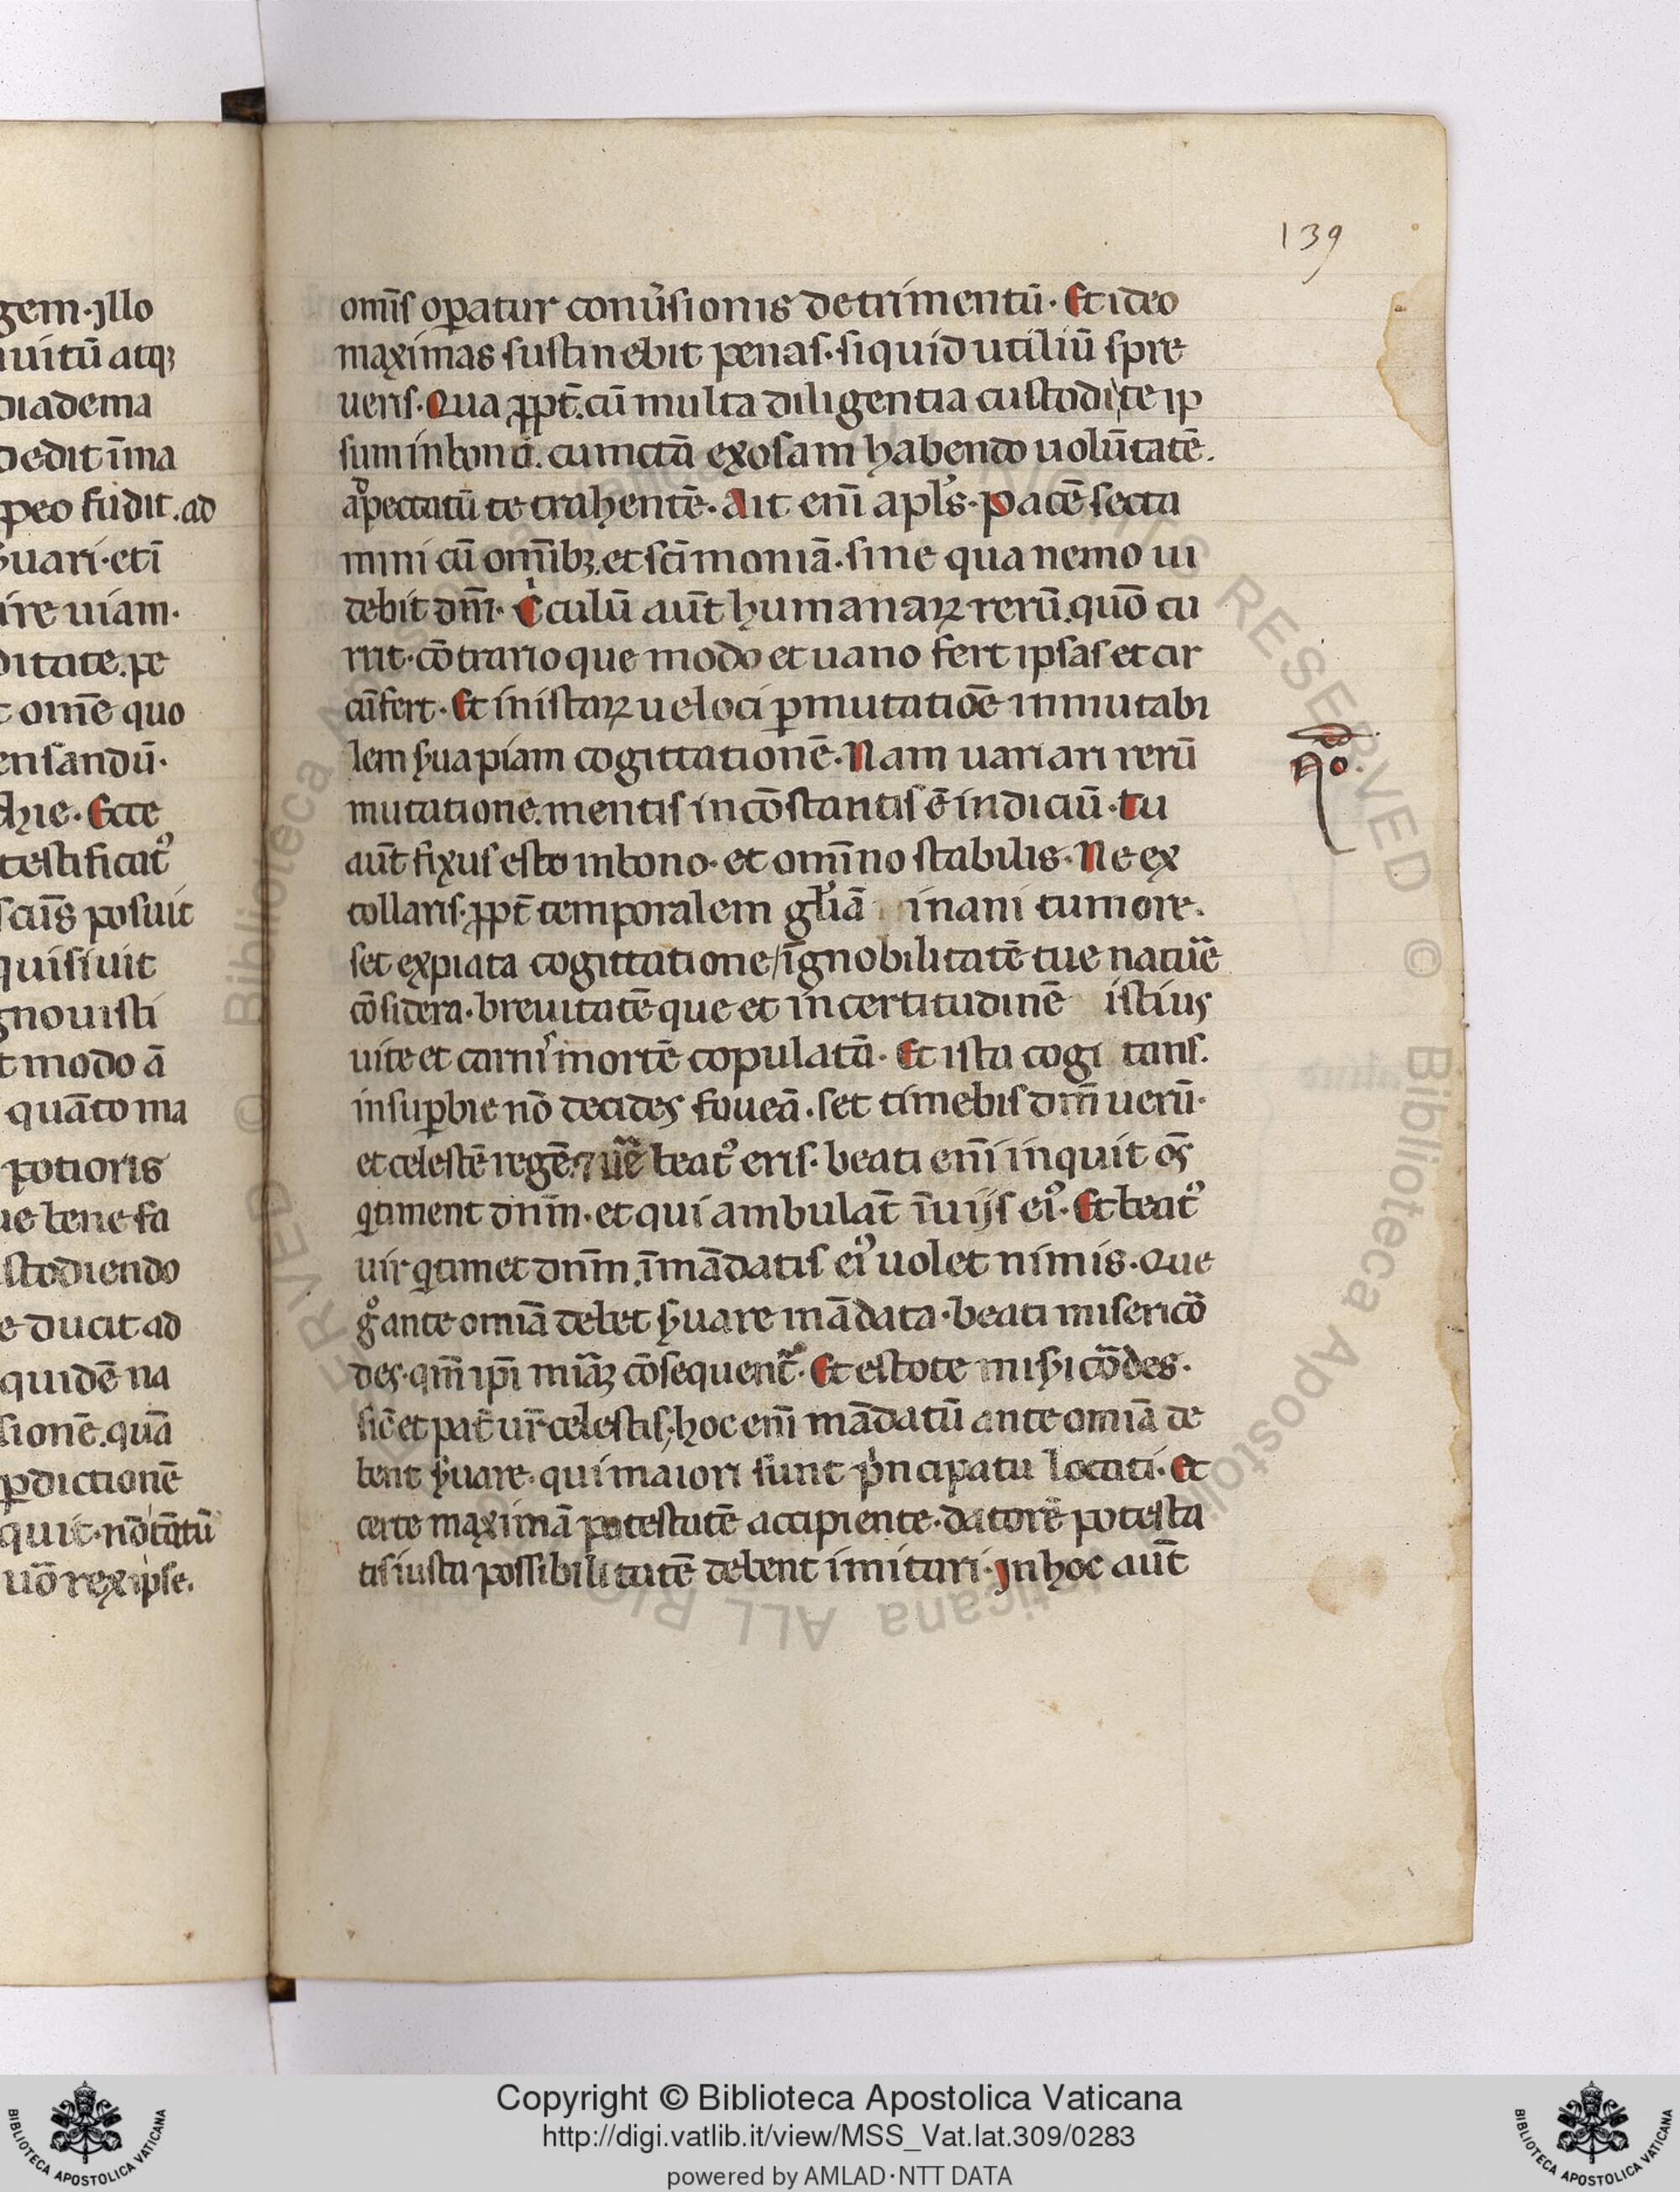 139
gem·jllo
uitū atqꝫ
diadema
dedit īma
peo fūdit.ad
ẏuari·etī
ire uiam·
ditate.pe
omē quo
ensandū·
dhie·Ecce
testificat᷒
scūs posuit
quisiuit
gnouisti
t modo ā
quāto ma
potioris
ue bene fa
stodiendo
e ducit ad
quidē na
sionē.quā
ꝑdictionē
quit·nō tātū
uō rex ipse.
omīs oꝑatur conu͛sionis detrimentū·Et ideo
maximas sustinebit penas·siquid utiliū spre
ueris·Qua ꝓpt̄.cū multa diligentia custodi te ip
sum in bono.cunctā exosam habendo uolūtatē.
a peccatū te trahentē·Ait enī apl̓s·pacē secta
mini cū omībꝫ.et scī moniā·sine qua nemo ui
debit dm̄·Cͥculū aūt humanaꝝ rerū.quōcu
rrit·cōtrario que modo et uano fert ipsas et cir
cūfert·Et in istaꝝ ueloci ꝑmutatiōe inmutabi
lem ẏua piam cogittationē·Nam uariari rerū
mutatione.mentis incōstantis ē indiciū·tu
aūt fixus esto in bono·et omīno stabilis·Ne ex
tollaris·ꝓpt̄ temporalem gl̓iā inani tumore.
set expiata cogittatione/īgnobilitatē tue natūe
cōsidera·breuitatē que et incertitudinē istius
uite et carnͥ mortē copulatā·Et ista cogi tans.
in suꝑbie nō decides foueā·set timebis dm̄ uerū·
et celestē regē.⁊ ūe beat᷒ eris·beati enī inquit oēs
q̇ timent dnm̄·et qui ambulāt ī uijs ei᷒·Et beat᷒
uir q̇ timet dnm̄.ī mādatis ei᷒ uolet nimis·Que
gͦ ante omiā debet ẏuare mādata·beati misericō
des·qm̄ ipī mīaꝫ cōsequent᷒·Et estote miẏicōdes·
sic̄ et pat̄ ur̄ celestis;hoc enī mādatū ante omiā de
bent ẏuare·qui maiori sunt pͥncipatu locati·Et
certe maximā potestatē accipiente·datorē potesta
tis iusta possibilitatē debent imitari·jn hoc aūt
Copyright © Biblioteca Apostolica Vaticana
http://digi.vatlib.it/view/MSS_Vat.lat.309/0283
powered by AMLAD·NTT DATA
BIBLIOTECA APOSTOLICA VATICANA
BIBLIOTECA APOSTOLICA VATICANA